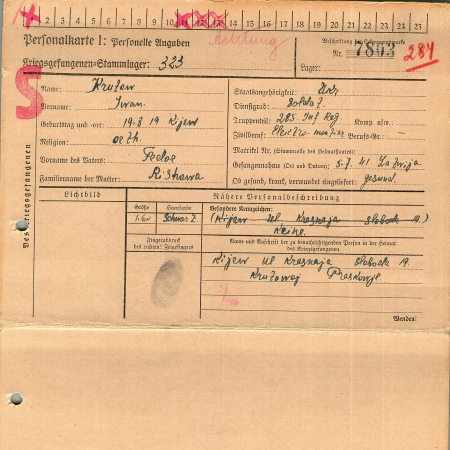 1 2 3 4 5 6 7 8 9 10 11 12 13 14 15 16 17 18 19 20 21 22 23 24 25
Achtung
Personalkarte I: Personelle Angaben
Kriegsgefangenen-Stammlager: 323
Beschriftung der Erkennungsmarke
Nr. 7843
284
Lager:
S
Des Kriegsgefangenen
Name: Krutow
Vorname: Iwan
Geburtstag und -ort: 19.8.19 Kijew
Religion: orth.
Vorname des Vaters: Fedor
Familienname der Mutter:
Staatsangehörigkeit:
Dienstgrad: Soldat
Truppenteil: 285 Inf Reg Komp. usw.:
Zivilberuf: Berufs-Gr.: —
Matrikel Nr. (Stammrolle des Heimatstaates):
Gefangennahme (Ort und Datum): 5.7.41
Ob gesund, krank, verwundet eingeliefert: gesund.
Lichtbild
Nähere Personalbeschreibung
Größe
Haarfarbe
Besondere Kennzeichen:
Schwarz.
(Kijew ul Krasnaja Slobodk 19.)
Keine.
Fingerabdruck
des rechten! Zeigefingers
Name und Anschrift der zu benachrichtigenden Person in der Heimat
des Kriegsgefangenen
Kijew ul Krasnaja Slobodk 19.
Krutowoj
Wenden!